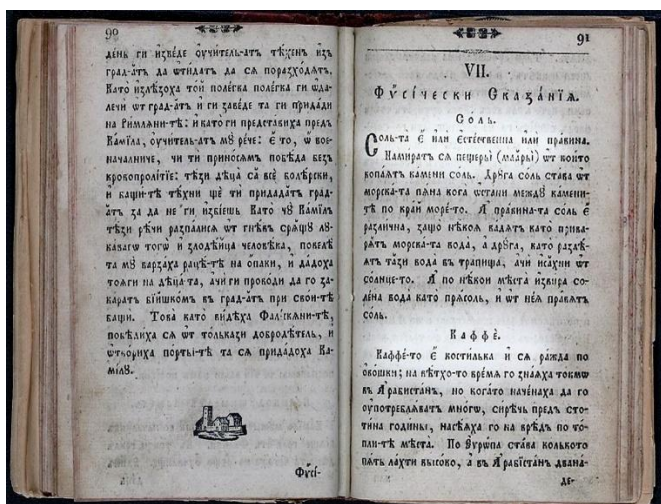 90
де́нь ги и҆зве́де ᲂу҆чи́тель-атъ тѣ́хенъ и҆зъ
гра́д-а́тъ да ѿи́датъ да сѧ поразхо́дѧтъ.
Като̀ и҆злѣ́зоха то́й поле́гка поле́гка ги ѿда-
ле́чи ѿт гра́д-а́тъ и҆ ги заве́де та ги прида́ди
на Ри́млѧни-тѣ: и҆ като̀ ги предста́виха пре́дъ
Ками́ла, ᲂу҆чи́тель-атъ мꙋ̀ ре́че: Е҆́ то, ѽ вое-
нача́лниче, чи ти прино́сѧмъ побѣ́да безъ
кровопроли́тїе: тѣ́зи дѣ́ца са̀ всѐ болѧ́рски,
и҆ бащи́-тѣ тѣ́хни щѐ тѝ придада́тъ гра́д-
а́тъ за да не ги и҆збі́ешь Като̀ чꙋ̀ Ками́лъ
тѣ́зи рѣ́чи разпали́сѧ ѿт гнѣ́въ срѧ́щꙋ лꙋ-
ка́вагѡ тогѡ̀ и҆ злодѣ́йца человѣ́ка, повелѣ̀
та мꙋ̀ варза́ха рацѣ́-тѣ на ѻ҆па́ки, и҆ дадо́ха
тоѧ́ги на дѣ́ца-та, а҆чи́ ги прово́ди да го за-
ка́ратъ бїи́шкомъ въ гра́д-а́тъ при свои́-тѣ
бащѝ. Това̀ като̀ ви́дѣха Фалїскѧни-тѣ,
побѣди́ха сѧ ѿт толька́зи добродѣ́тель, и҆
ѿтвори́ха по́рты-тѣ та сѧ придадо́ха Ка-
ми́лꙋ.
Фѷсі́-
91
VII.
Фѷсі́чески Сказа́нїѧ.
Со́ль.
Со́ль-та Е҆̀ и҆лѝ Е҆сте́ственна и҆лѝ пра́вина.
Нами́ратъ сѧ пещеры̀ (маа́ры) ѿт кои́то
копа́ѧтъ ка́мени со́ль. Дрꙋ́га со́ль ста́ва ѿт
мо́рска-та пѧ́на кога̀ ѡ҆ста́ни междꙋ̀ ка́мени-
тѣ по кра́й море́-то. А҆ пра́вина-та со́ль Е҆̀
разли́чна, защо̀ нѣ́коѧ ва́дѧтъ като̀ прива-
рѧ́тъ мо́рска-та вода̀, а҆ дрꙋ́га, като̀ разлѣ́-
ѧтъ та́зи вода̀ въ трапи́ща, а҆чѝ и҆са́хни ѿт
со́лнце-то. А҆ по нѣ́кои мѣ́ста и҆зви́ра со-
ле́на вода̀ като̀ прѧ́соль, и҆ ѿт неѧ̀ пра́вѧтъ
со́ль.
Каффѐ.
Каффѐ-то Е҆̀ кости́лька и҆ сѧ ра́жда по
ѻ҆во́шки; на вѣ́тхо-то вре́мѧ го зна́ѧха то́кмѡ
въ А҆рабиста́нъ, но кога́то наче́наха да го
ᲂу҆потреблѧ́ватъ мно́гѡ, си́рѣчь пре́дъ сто-
ти́на годи́ны, насѣ́ѧха го на врѣ́дъ по то́-
пли-тѣ мѣ́ста. По Еѵ҆рѡ́па ста́ва ко́лькото
пѧ́ть ла́хти высо́ко, а҆ въ А҆рабїста́нъ двана́-
де-